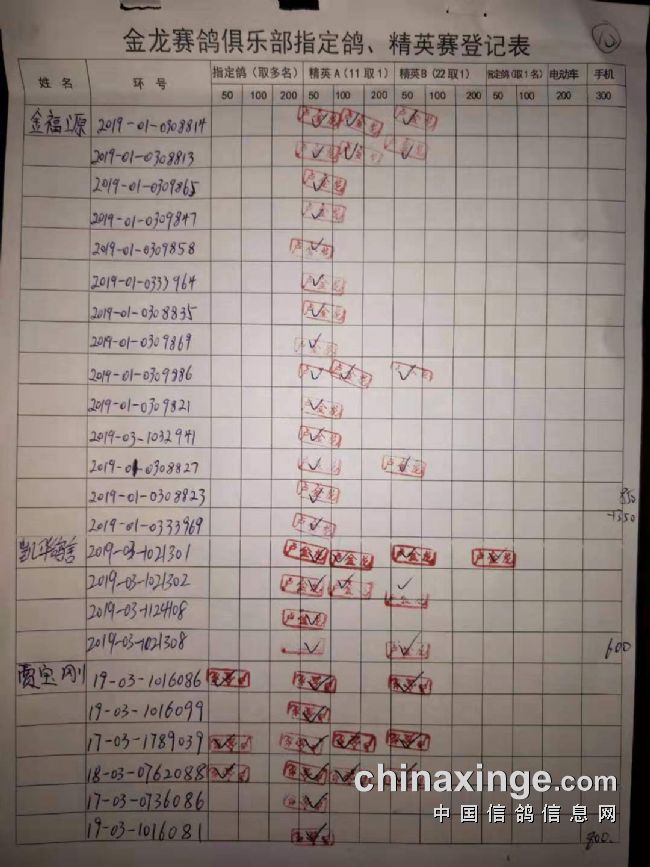 10
金龙赛鸽俱乐部指定鸽、精英赛登记表
姓名 环号 指定鸽（取多名） 精英A（11取1） 精英B（22取1） 指定鸽（取1名） 电动车 手机
50 100 200 50 100 200 50 100 200 50 100 200 300
金福源 2019-01-0308814
2019-01-0308813
2019-01-0309865
2019-01-0309847
2019-01-0309858
2019-01-0333964
2019-01-0308835
2019-01-0309869
2019-01-0309886
2019-01-0309821
2019-03-1032941
2019-01-0308827
2019-01-0308823 850
2019-01-0333969 1350
2019-03-1021301
2019-03-1021302
2019-03-1124108
2019-03-1021308 600
贾宝刚 19-03-1016086
19-03-1016099
17-03-1789039
18-03-0762088
17-03-0736086
19-03-1016081 800
chinaxinge.com
中国信鸽信息网